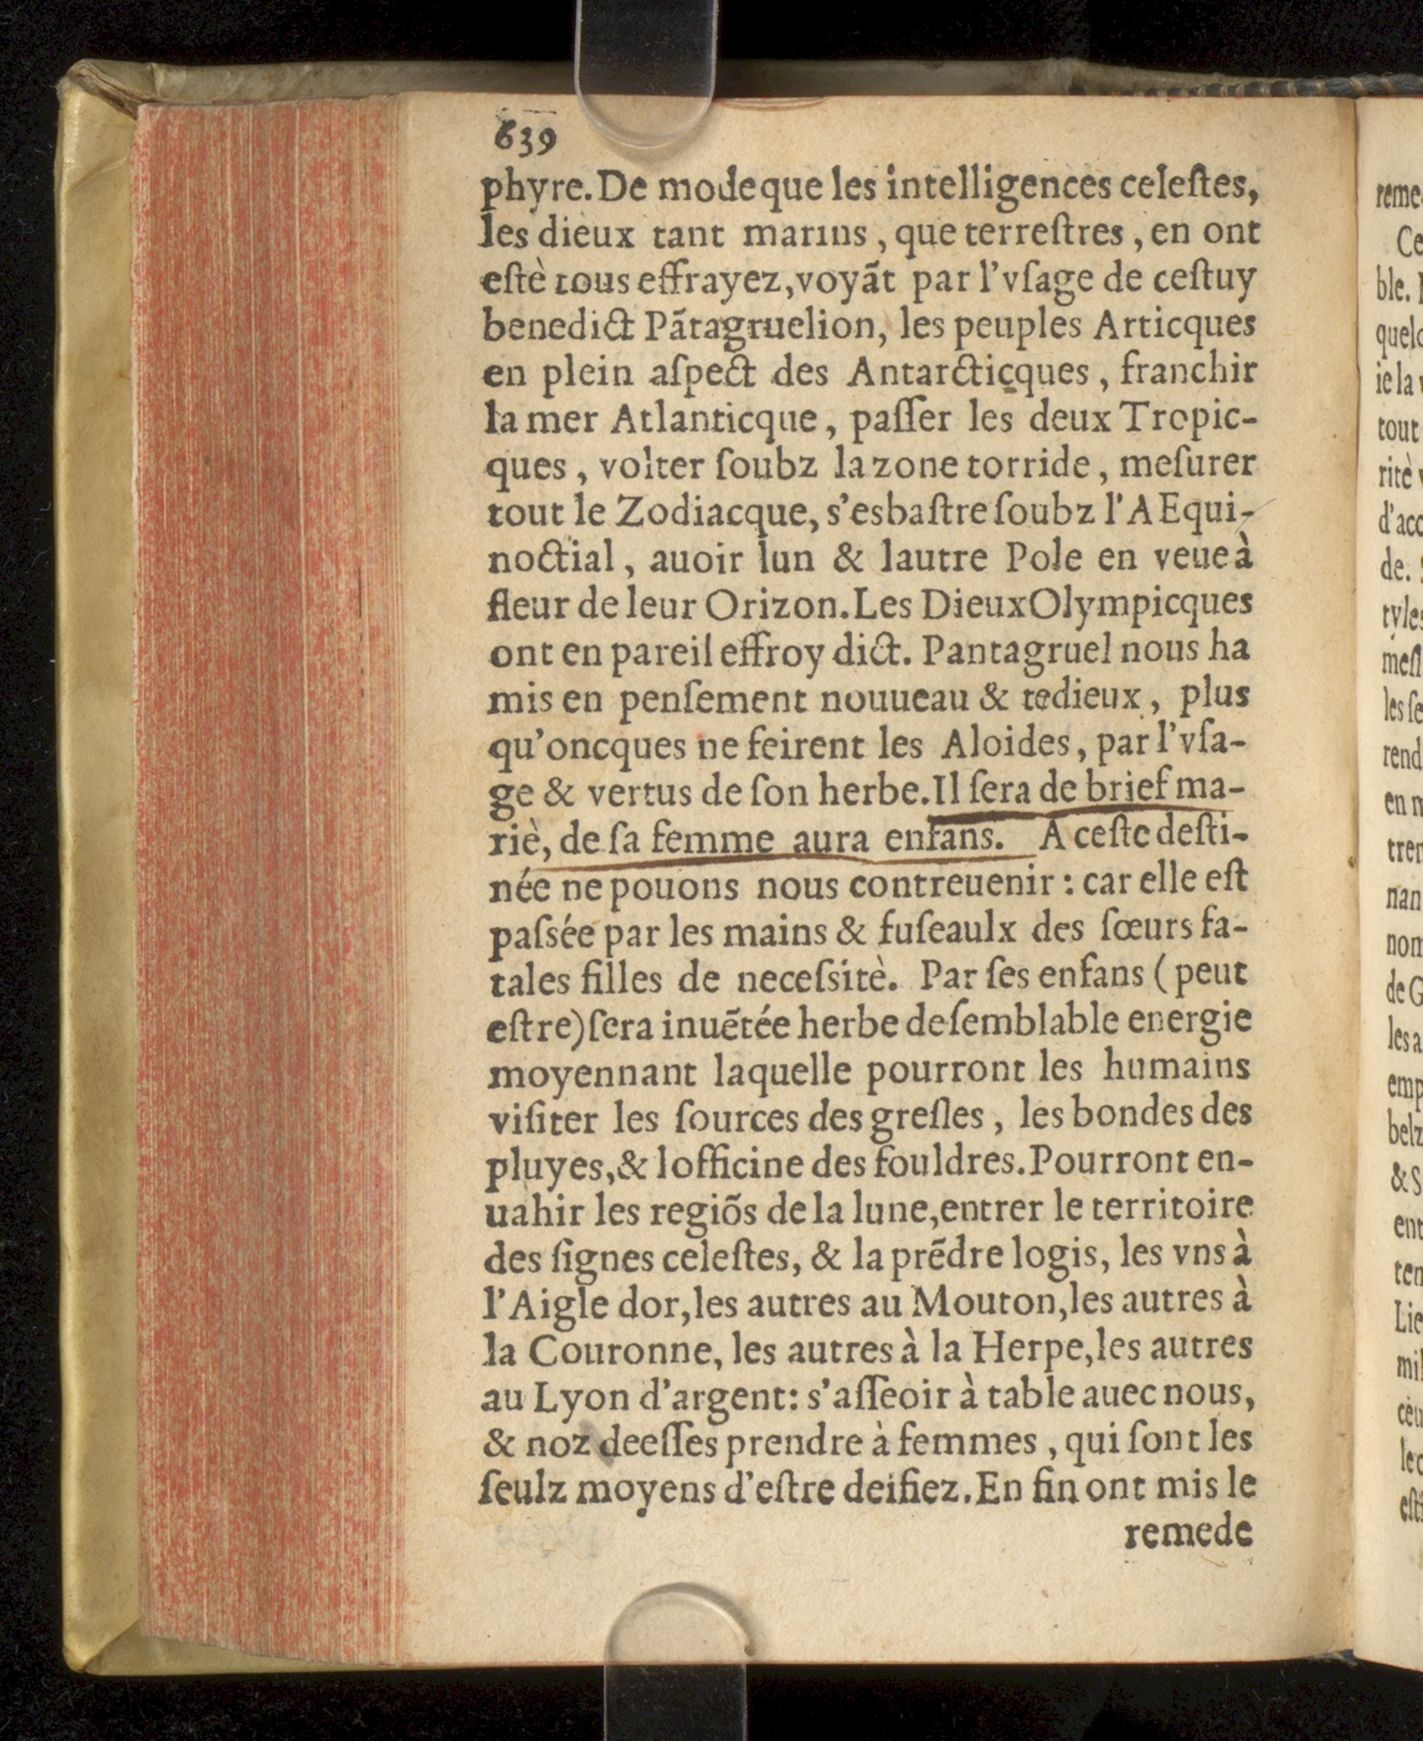 639
phyre. De mode que les intelligences celeſtes,
les dieux tant marins, que terreſtres, en ont
eſtè tous effrayez, voyãt par l'vſage de ceſtuy
benedict Pãtagruelion, les peuples Articques
en plein aſpect des Antarcticques, franchir
la mer Atlanticque, paſſer les deux Tropic-
ques, volter ſoubz la zone torride, meſurer
tout le Zodiacque, s'esbaſtre ſoubz l'AEqui-
noctial, auoir lun & lautre Pole en veue à
fleur de leur Orizon. Les Dieux Olympicques
ont en pareil effroy dict. Pantagruel nous ha
mis en penſement nouueau & tedieux, plus
qu'oncques ne feirent les Aloides, par l'vſa-
ge & vertus de ſon herbe. Il ſera de brief ma-
riè, de ſa femme aura enfans. A ceſte deſti-
née ne pouons nous contreuenir : car elle eſt
paſsée par les mains & fuſeaulx des ſœurs fa-
tales filles de neceſsitè. Par ſes enfans (peut
eſtre) ſera inuẽtée herbe de ſemblable energie
moyennant laquelle pourront les humains
viſiter les ſources des greſles, les bondes des
pluyes, & lofficine des fouldres. Pourront en-
uahir les regiõs de la lune, entrer le territoire
des ſignes celeſtes, & la prẽdre logis, les vns à
l'Aigle dor, les autres au Mouton, les autres à
la Couronne, les autres à la Herpe, les autres
au Lyon d'argent: s'aſſeoir à table auec nous,
& noz deeſſes prendre à femmes, qui ſont les
ſeulz moyens d'eſtre deifiez. En fin ont mis le
remede